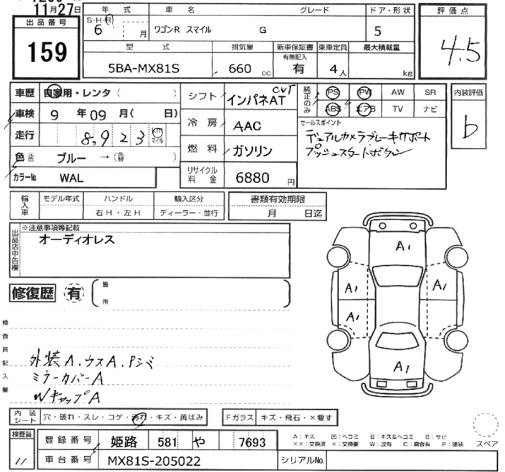 11月27日
出品番号 159
年式 S・H・R 6 年 月
車名 ワゴンR スマイル
グレード G
ドア・形状 5
評価点 4.5
型式 5BA-MX81S
排気量 660 cc
新車保証書 有無記入 有
乗車定員 4人
最大積載量 kg
車歴 自家用・レンタ( )
車検 9年 09月( 日)
走行 8,923
色 ブルー → (替 )
カラーNo WAL
シフト インパネAT CVT
冷房 AAC
燃料 ガソリン
リサイクル料金 6880円
純正のみ PS PW AW SR
ABS エアB TV ナビ
セールスポイント
デュアルカメラブレーキサポート
プッシュスタートボタン
内装評価 b
輸入車 モデル年式 ハンドル 輸入区分
右H・左H ディーラー・並行
書類有効期限
月 日迄
出品店申告欄 ※注意事項等記載
オーディオレス
修復歴 有 箇所
検査員記入欄
外装A、ウスA、Pシミ
ミラーカバーA
WキャップA
A1
A1 A1 A1
A1
内装シート 穴・破れ・スレ・コゲ・汚れ・キズ・黄ばみ
Fガラス キズ・飛石・×要す
検査員 11
登録番号 姫路 581 や 7693
車台番号 MX81S-205022
シリアルNo.
A:キズ U:凹ヘコミ B:キズ&ヘコミ S:サビ
××:交換済 ×:交換要 W:波有 C:腐食有 P:塗装
スペア